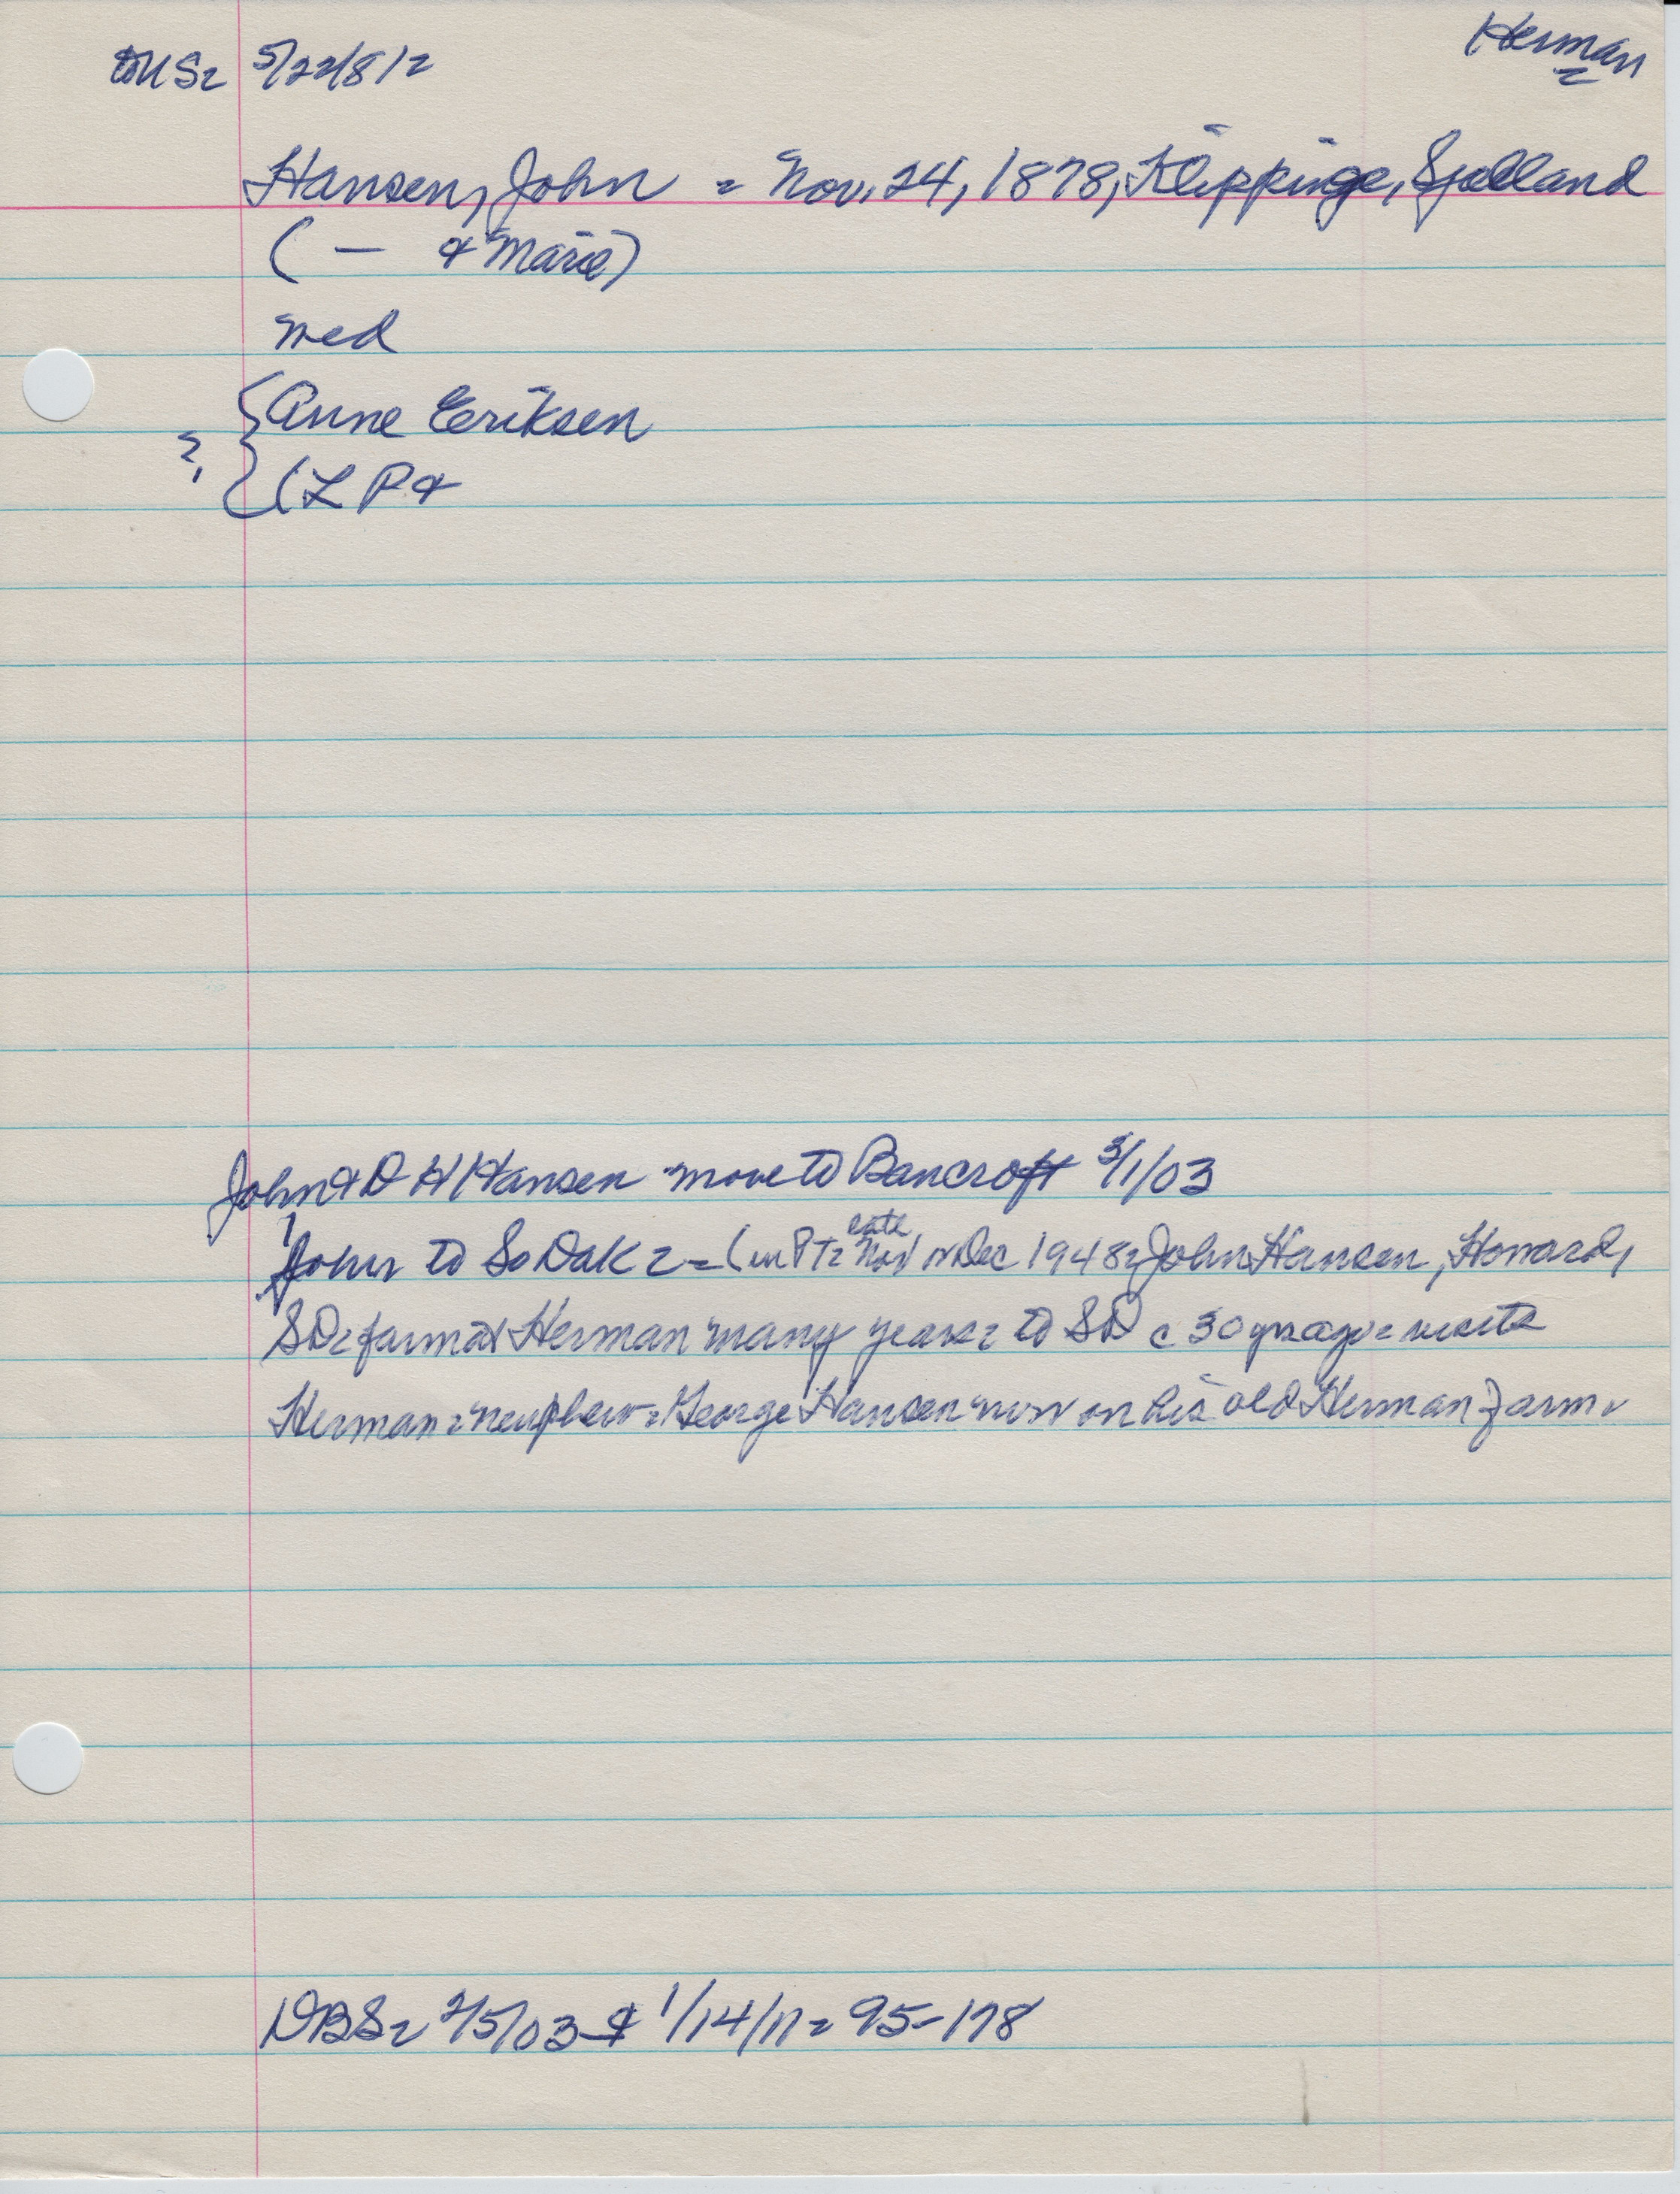 Herman
5/22/81
Hansen, John = Nov. 24, 1878, Klippinge, Sjælland
(— & Marie)
med
Anne Eriksen
?, (L P &
John & D H Hansen move to Bancroft 3/1/03
late
John to So Dak = (in PT = Nov or Dec 1948 = John Hansen, Howard,
SD = farmed Herman many years = to SD c 30 yrs ago = visits
Herman = neuphew = George Hansen now on his old Herman farm
DBS = 2/5/03 & 1/14/11 = 95-178